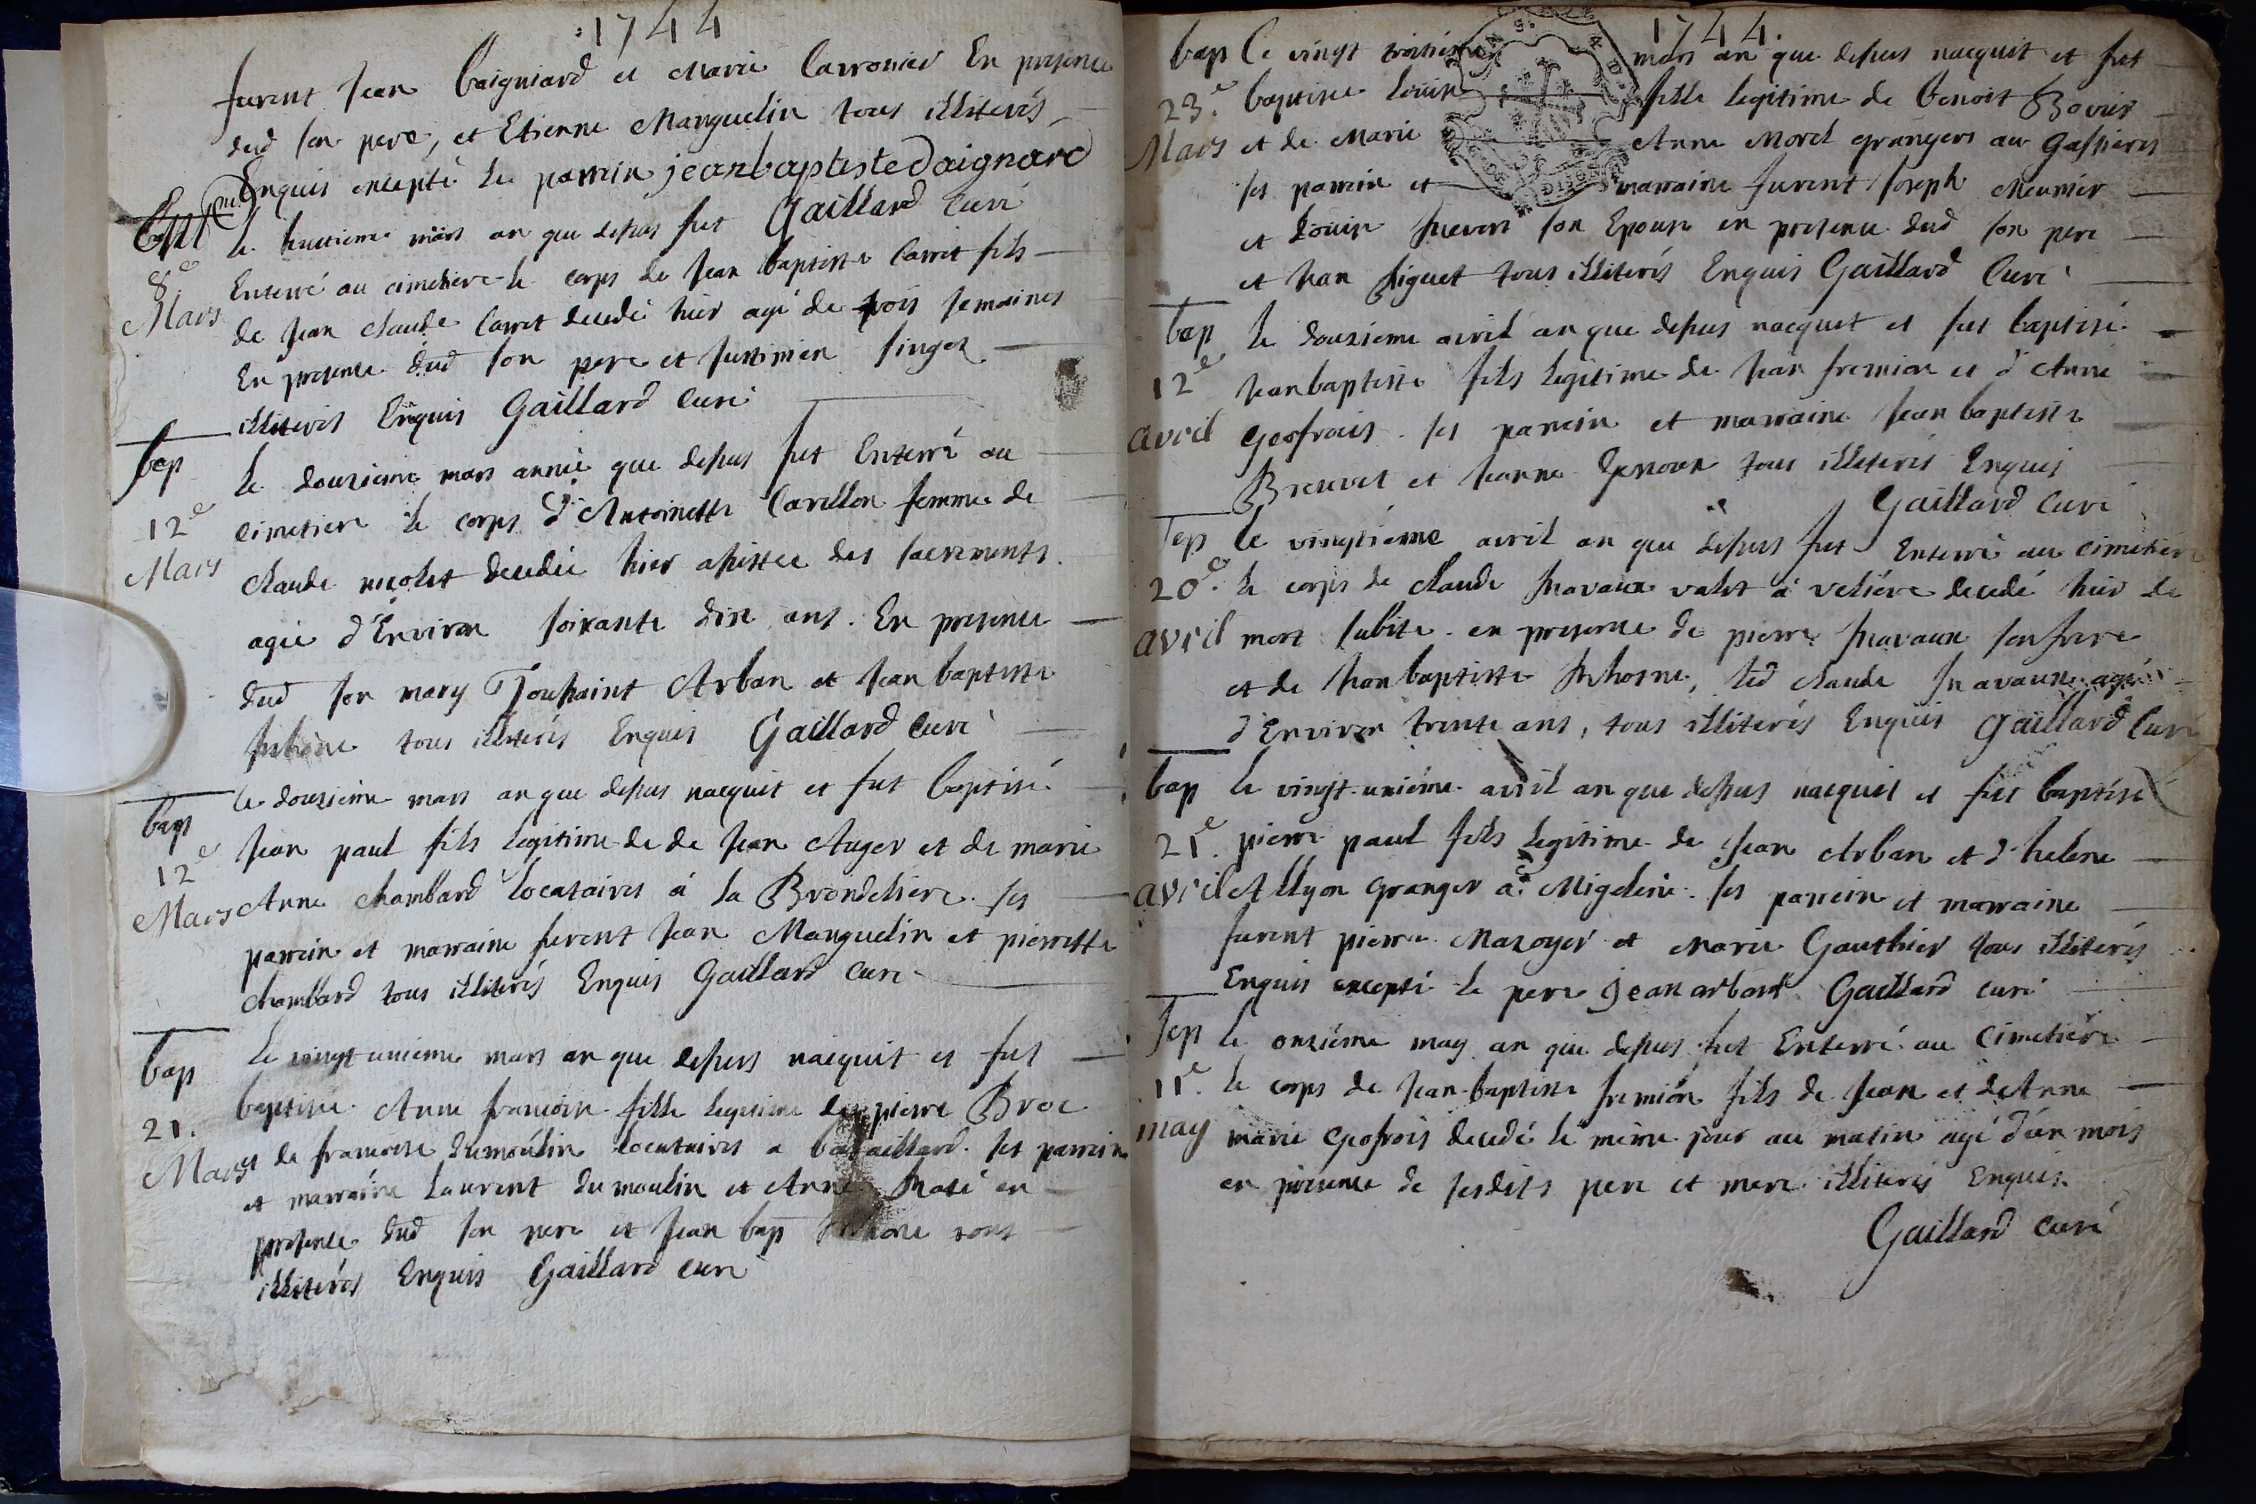 1744
furent jean baigniard et marie Carronier En presence
dud son pere, et Etienne Manguelin tous illiterés
Enquis excepté le parrein jeanbaptistedaignard
Gaillard Curé
8e Mars
le huitieme mars an que dessus fut
Enterré au cimetiere le corps de jean baptiste Carret fils
de jean claude Carret decedé hier agé de trois semaines
En presence dud son pere et justinien singer
illiterés Enquis Gaillard Curé
bap
12e Mars
le douzieme mars année que dessus fut Enterré au
cimetiere le corps d'Antoinette Carillon femme de
claude nicolet decedée hier assistee des sacrements
agée d'Environ soixante dix ans. En presence
dud son mary Toussaint Arban et jean baptiste
tous illiterés Enquis Gaillard Curé
bap
12e Mars
le douzieme mars an que dessus nacquit et fut baptisé
jean paul fils legitime de de jean Auger et de marie
Anne chambard locataires à la Brondeliere. ses
parrein et marraine furent jean Manguelin et pierrette
chambard tous illiterés Enquis Gaillard Curé
bap
21. Mars
le vingt unieme mars an que dessus nacquit et fut
baptisée Anne francoise fille legitime de pierre Broc
et de francoise dumoulin locataires a bataillard. ses parrein
et marraine Laurent dumoulin et Anne en
presence dud son pere et jean bap tous
illiterés Enquis Gaillard Curé
1744.
bap
23.e Mars
Le vingt troisieme mars an que dessus nacquit et fut
baptisée Louise fille legitime de Benoit Bovier
et de Marie Anne Morel grangers au Gassieres
ses parrein et marraine furent joseph Meunier
et Louise son Epouse en presence dud son pere
et jean Piguet tous illiterés Enquis Gaillard Curé
bap
12e avril
le douzieme avril an que dessus nacquit et fut baptisé
jeanbaptiste fils legitime de jean fremion et d'Anne
Geofrois. ses parrein et marraine jeanbaptiste
Breuvet et jeanne tous illiterés Enquis
Gaillard Curé
sep
20e. avril
le vingtiéme avril an que dessus fut Enterré au cimetiere
le corps de claude valet à veliére decedé hier de
mort subite. en presence de pierre son frere
et de jeanbaptiste led claude agé
d'Environ trente ans, tous illiterés Enquis Gaillard Curé
bap
21e. avril
le vingt-uniéme avril an que dessus nacquit et fut baptisé
pierre paul fils legitime de jean Arban et d'helene
Allyon granger a Migeliere. ses parrein et marraine
furent pierre Mazoyer et Marie Gauthier tous illiterés
Enquis excepté le pere jean arban Gaillard curé
sep
11e. may
le onziéme may an que dessus fut Enterré au Cimetiére
le corps de jean-baptiste fremion fils de jean et de Anne
marie Geofrois decedé le méme jour au matin agé d'un mois
en presence de sesdits pere et mere illiterés Enquis.
Gaillard curé